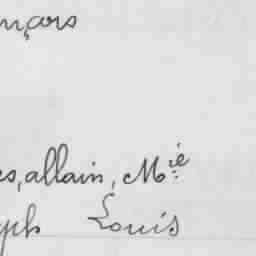 nçois
es, allain, M.ié
ph Louis